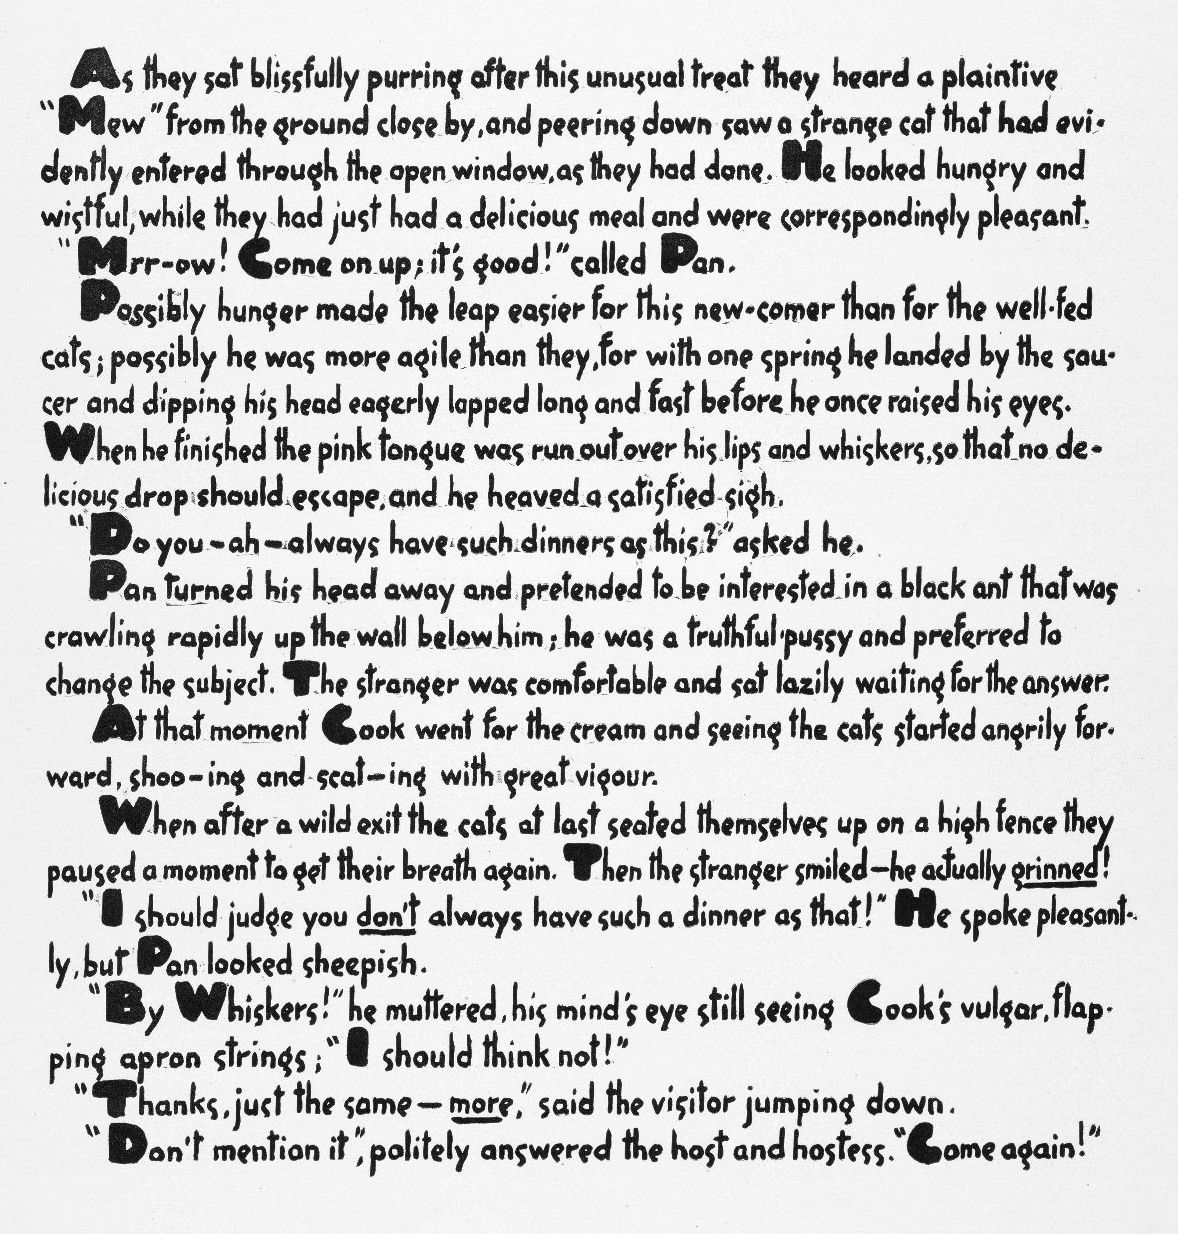 As they sat blissfully purring after this unusual treat they heard a plaintive
"Mew" from the ground close by, and peering down saw a strange cat that had evi-
dently entered through the open window, as they had done. He looked hungry and
wistful, while they had just had a delicious meal and were correspondingly pleasant.
"Mrr-ow! Come on up; it's good!" called Pan.
Possibly hunger made the leap easier for this new-comer than for the well-fed
cats; possibly he was more agile than they, for with one spring he landed by the sau-
cer and dipping his head eagerly lapped long and fast before he once raised his eyes.
When he finished the pink tongue was run out over his lips and whiskers, so that no de-
licious drop should escape, and he heaved a satisfied sigh.
"Do you - ah - always have such dinners as this?" asked he.
Pan turned his head away and pretended to be interested in a black ant that was
crawling rapidly up the wall below him; he was a truthful pussy and preferred to
change the subject. The stranger was comfortable and sat lazily waiting for the answer.
At that moment Cook went for the cream and seeing the cats started angrily for-
ward, shoo-ing and scat-ing with great vigour.
When after a wild exit the cats at last seated themselves up on a high fence they
paused a moment to get their breath again. Then the stranger smiled—he actually grinned!
"I should judge you don't always have such a dinner as that!" He spoke pleasant-
ly, but Pan looked sheepish.
"By Whiskers!" he muttered, his mind's eye still seeing Cook's vulgar, flap-
ping apron strings; "I should think not!"
"Thanks, just the same — more," said the visitor jumping down.
"Don't mention it", politely answered the host and hostess. "Come again!"